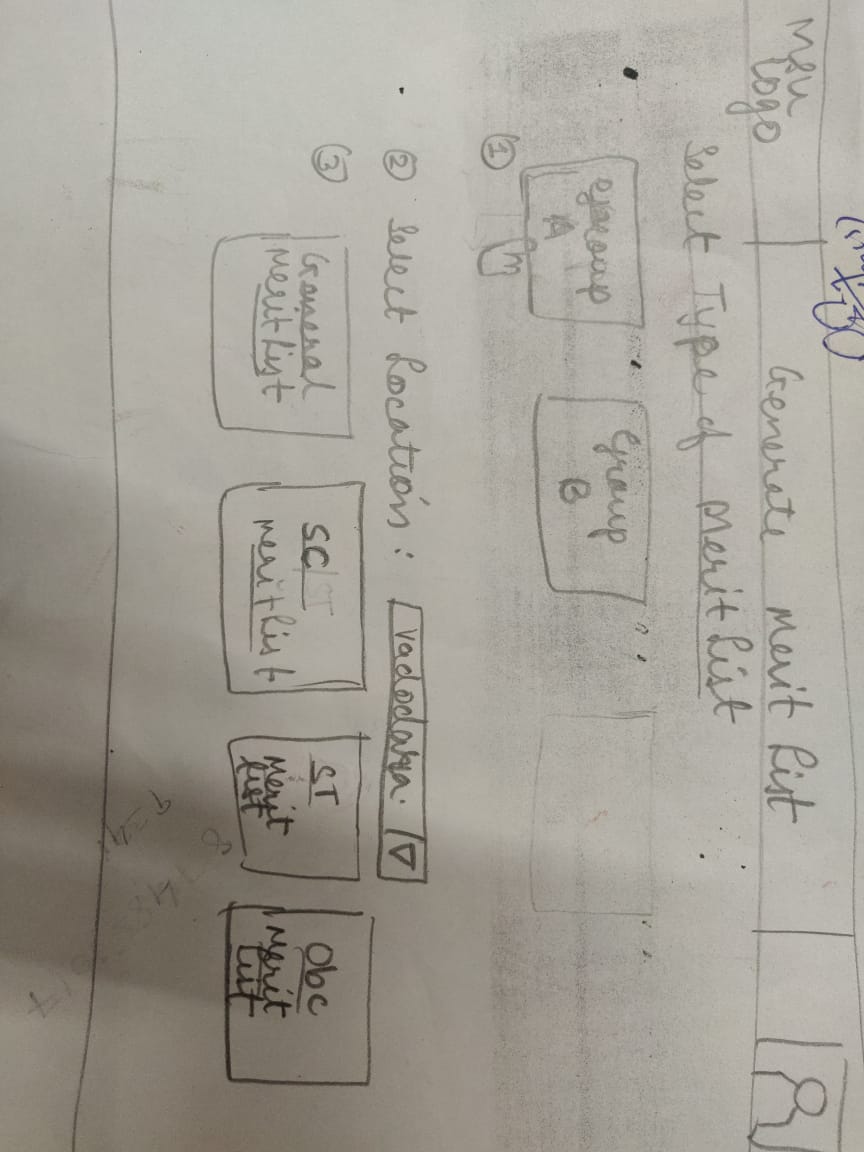 MSU
Logo
Generate Merit List
Select Type of Merit List
①
Group
A
m
Group
B
② Select Location: Vadodara.
③
General
Merit List
SC/ST
Merit List
ST
Merit
List
Obc
Merit
List